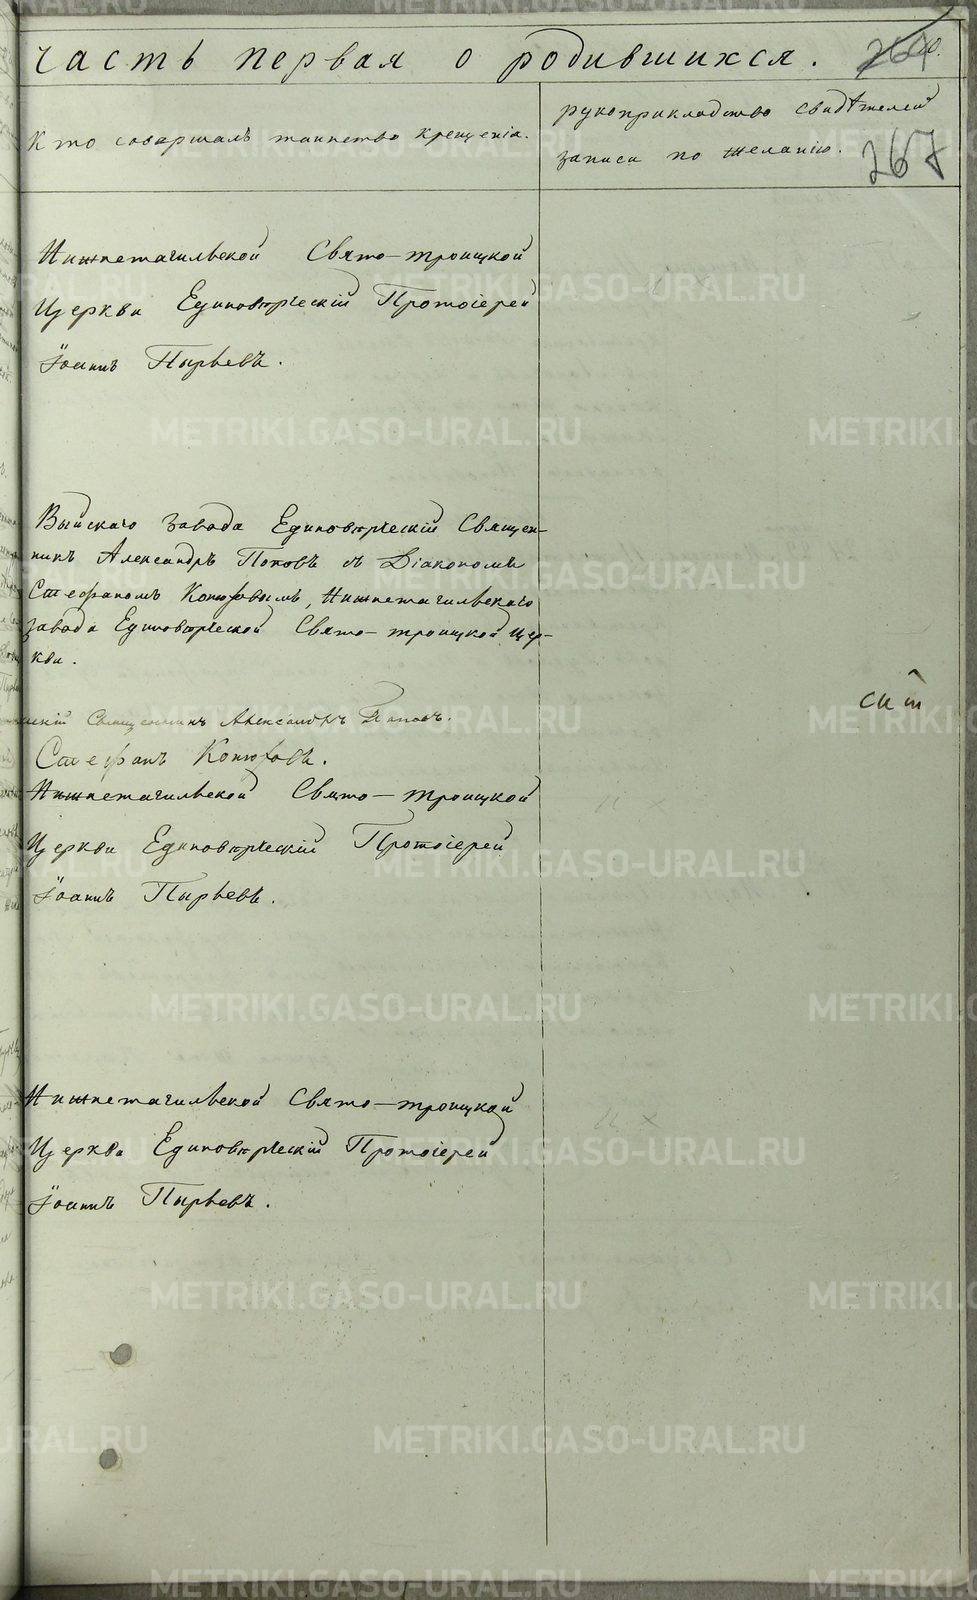 часть первая о родившихся.
Кто совершалъ таинство крещенія.
рукоприкладство свидѣтелей
записи по желанію.
267
Нижнетагильской Свято-троицкой
Церкви Единовѣрческій Протоіерей
Іоаннъ Пырьевъ.
Выйскаго завода Единовѣрческій Священ-
никъ Александръ Поповъ съ Діакономъ
Стефаномъ Конюховымъ, Нижнетагильскаго
завода Единовѣрческой Свято-троицкой цер-
кви.
Священникъ Александръ Поповъ.
Стефанъ Конюховъ.
Нижнетагильской Свято-троицкой
Церкви Единовѣрческій Протоіерей
Іоаннъ Пырьевъ.
Нижнетагильской Свято-троицкой
Церкви Единовѣрческій Протоіерей
Іоаннъ Пырьевъ.
METRIKI.GASO-URAL.RU